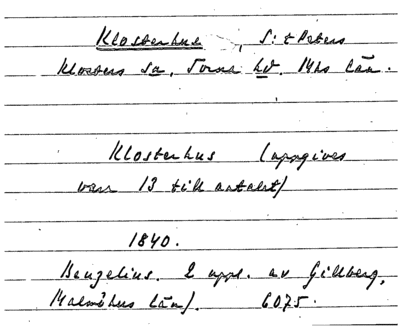 Klosterhus, S:t Peters
Klosters sn, Torna hd. Mhs län.
Klosterhus (uppgives
vara 13 till antalet)
1840.
Benzelius. 2 uppl. av Gillberg,
Malmöhus län). 6075.